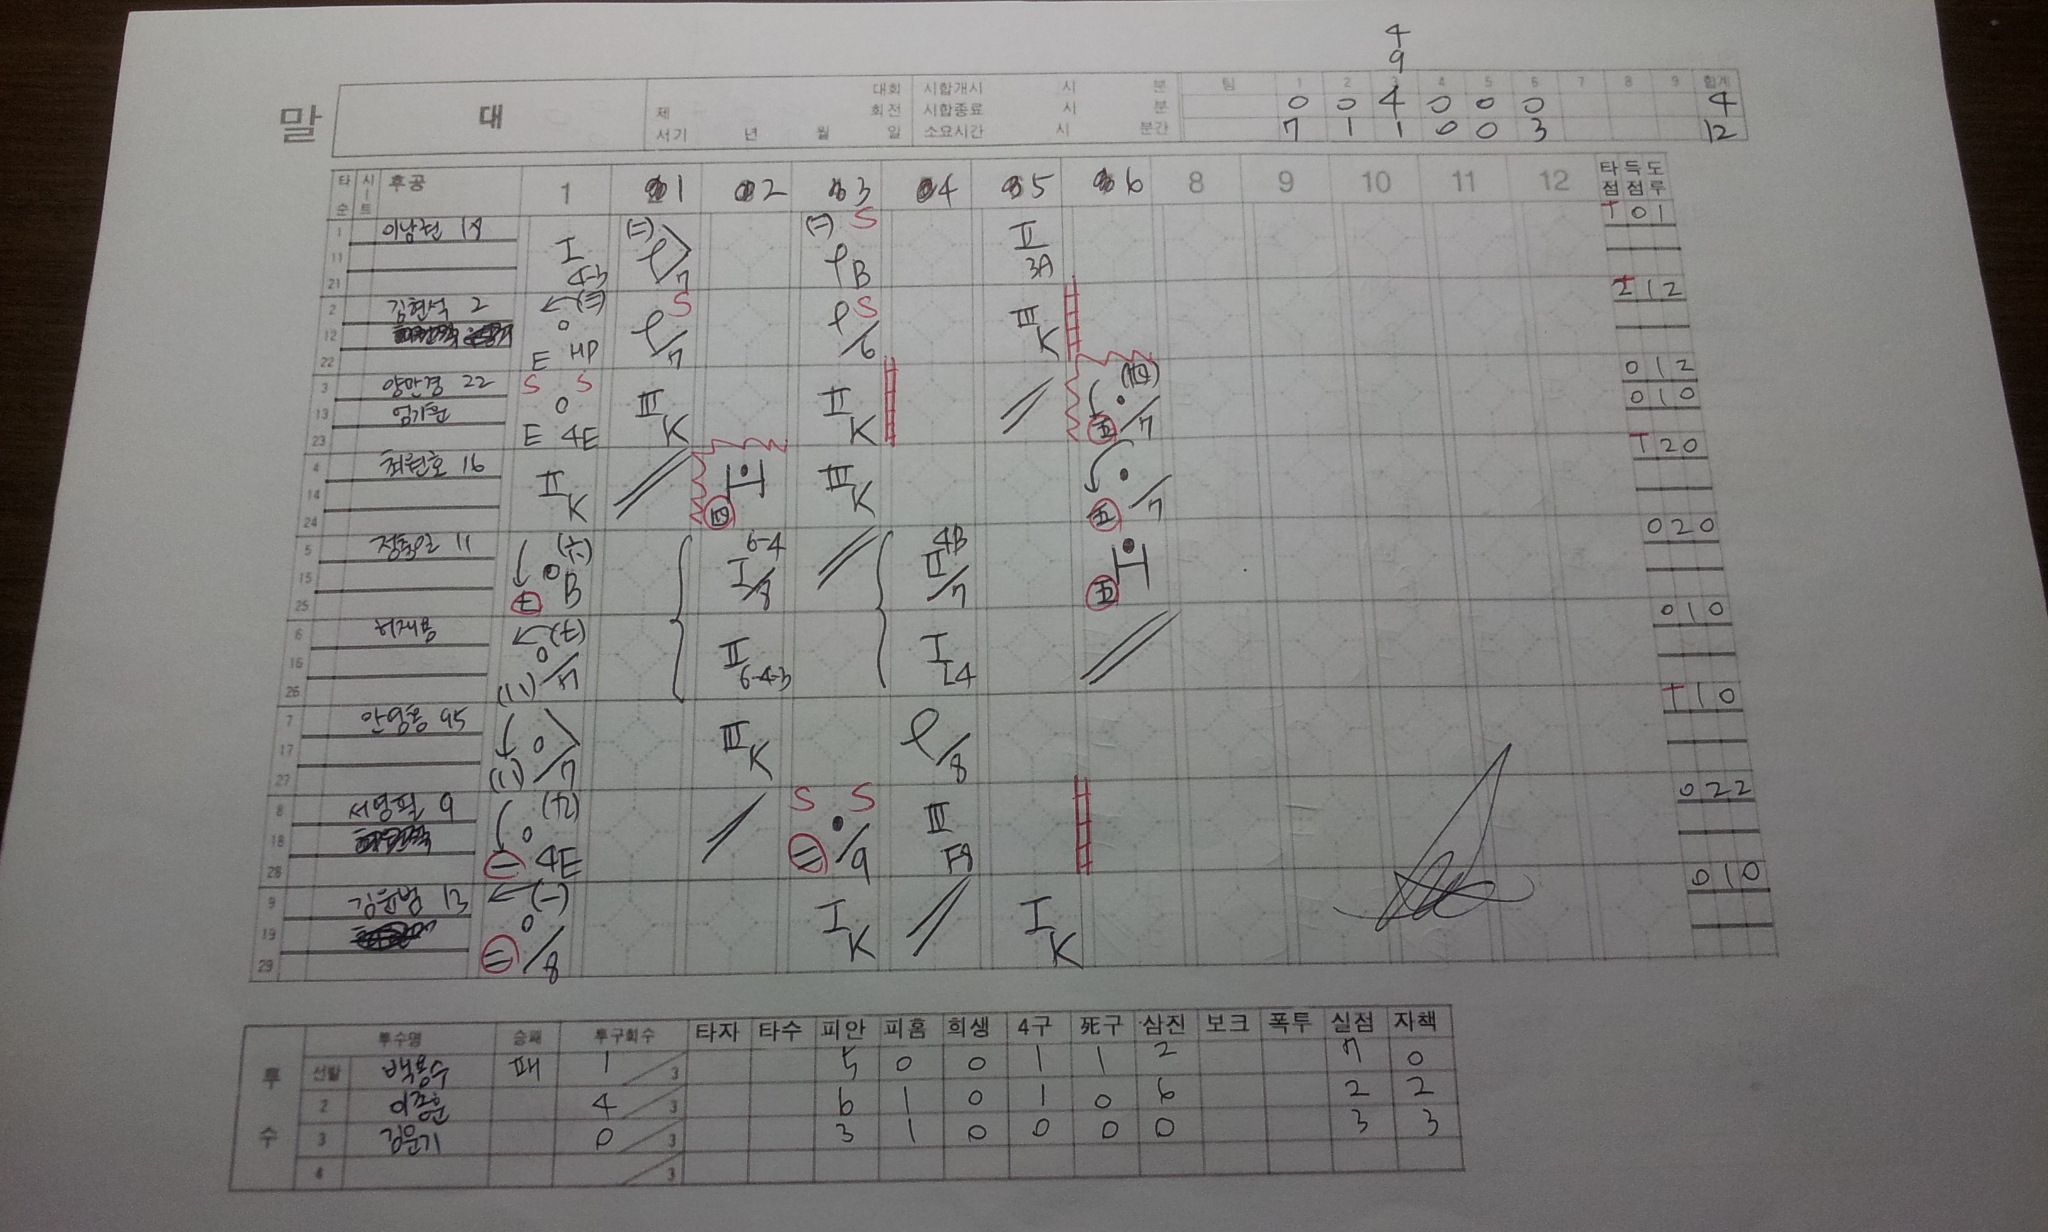 4
9
말
대
대회 시합개시 시 분
제 회전 시합종료 시 분
서기 년 월 일 소요시간 시 분간
팀 1 2 3 4 5 6 7 8 9 합계
0 0 4 0 0 0 4
7 1 1 0 0 3 12
타순 시트 후공 1 1 2 3 4 5 6 8 9 10 11 12 타점 득점 도루
1 11 21
(二) 7
(二) S B
II 3A
0 1
2 12 22 김현석 2
(三) E HP
S 7
S 6
III K
2 1 2
3 13 23 양만경 22
S S E 4E
III K
II K
7
0 1 2
0 1 0
4 14 24 최원호 16
II K
四
III K
五 7
2 0
5 15 25
(六) B
6-4 I 8
4B II 7
五
0 2 0
6 16 26 허재용
(七) 7
II 6-4-3
I L4
0 1 0
7 17 27 안영용 95
7
III K
8
1 0
8 18 28 서영필 9
4E
S S 9
III F8
0 2 2
9 19 29 김윤범 13
(一) 8
I K
I K
0 1 0
투수
투수명 승패 투구회수 타자 타수 피안 피홈 희생 4구 死구 삼진 보크 폭투 실점 자책
선발 백용수 패 1 /3 5 0 0 1 1 2 7 0
2 4 /3 6 1 0 1 0 6 2 2
3 김문기 0 /3 3 1 0 0 0 0 3 3
4 /3